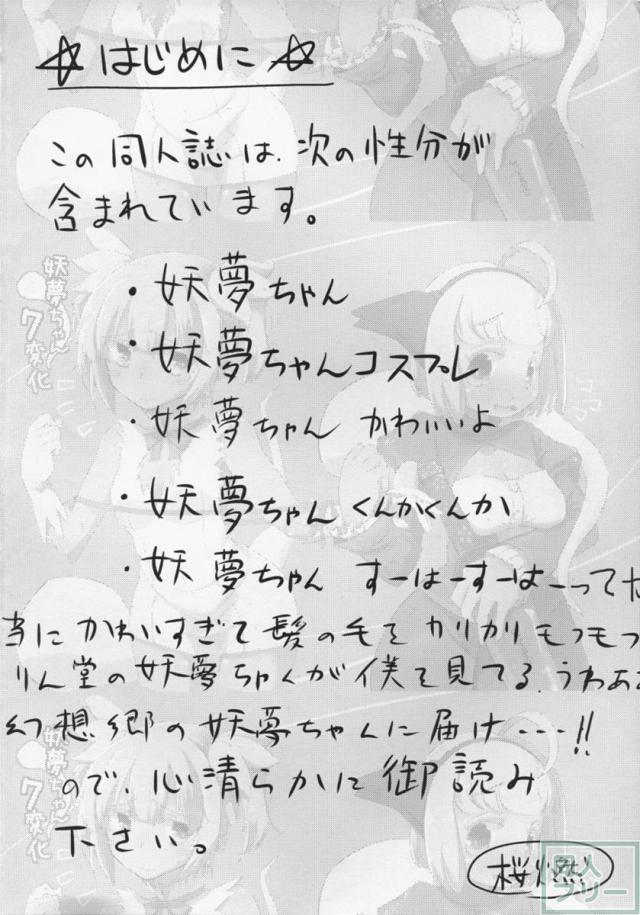 ☆はじめに☆
この同人誌は、次の性分が
含まれています。
・妖夢ちゃん
・妖夢ちゃんコスプレ
・妖夢ちゃん かわいいよ
・妖夢ちゃん くんかくんか
・妖夢ちゃん すーはーすーはーって
当にかわいすぎて髪の毛をカリカリモフモフ
りん堂の妖夢ちゃんが僕を見てる、うわああ
幻想郷の妖夢ちゃんに届け・・・!!
ので、心清らかに御読み
下さい。
桜燃
妖夢ちゃん
7変化
妖夢ちゃん
7変化
同人
フリー